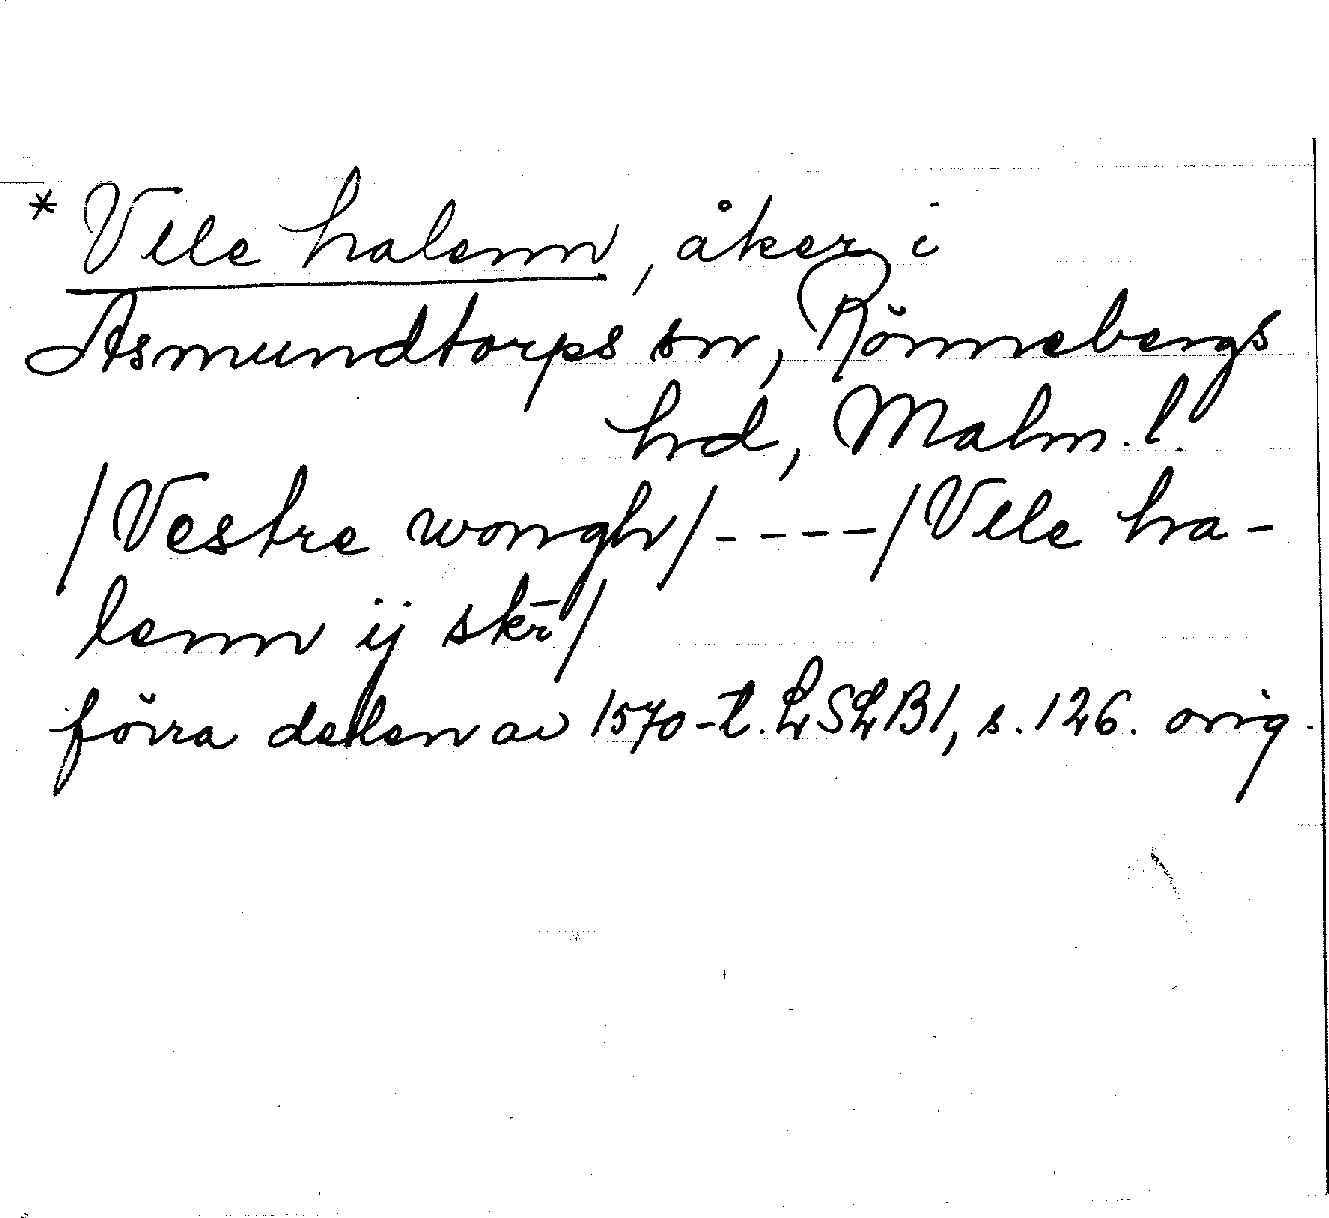 * Vele halenn, åker i
Asmundtorps sn, Rönnebergs
hd, Malm. l.
/Vestre wongh/----/Vele ha-
lenn ij skr̄/
förra delen av 1570-t. LSLB1, s. 126. orig.